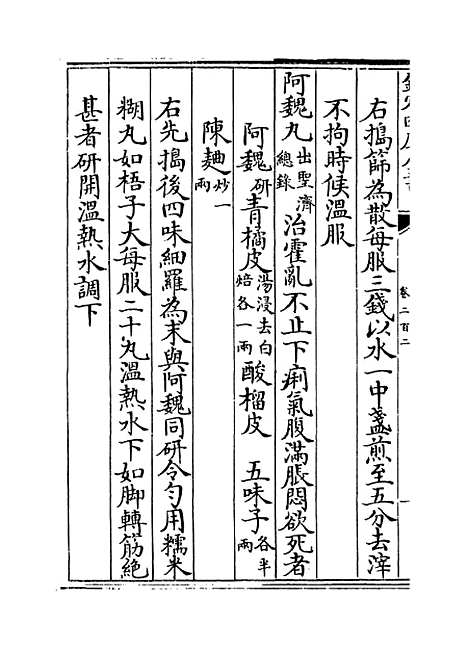 欽定四庫全書
卷二百二
右搗篩為散每服三錢以水一中盞煎至五分去滓
不拘時候温服
阿魏丸出聖濟總錄治霍亂不止下痢氣腹滿脹悶欲死者
阿魏研青橘皮湯浸去白焙各一兩酸榴皮 五味子各半兩
陳麯炒一兩
右先搗後四味細羅為末與阿魏同研令匀用糯米
糊丸如梧子大每服二十丸温熱水下如脚轉筋絶
甚者研開温熱水調下